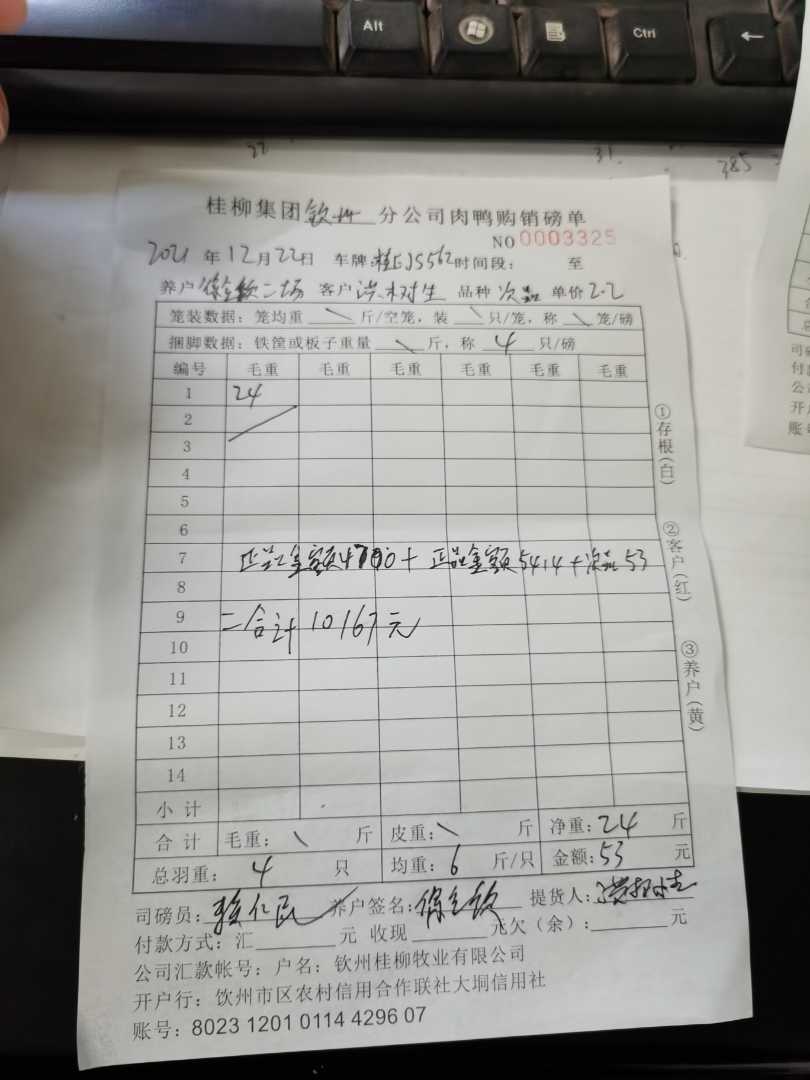 Alt
Ctrl
22
31.
385
桂柳集团钦州分公司肉鸭购销磅单
NO 0003325
2021年12月22日 车牌: 桂EJS562 时间段: 至
养户 二场 客户 洪 品种 次品 单价 2.2
笼装数据: 笼均重 \ 斤/空笼, 装 \ 只/笼, 称 \ 笼/磅
捆脚数据: 铁筐或板子重量 \ 斤, 称 4 只/磅
编号 毛重 毛重 毛重 毛重 毛重 毛重
1 24
2
3
4
5
6
7 正品金额4700+正品金额5414+次品53
8
9 =合计10167元
10
11
12
13
14
小计
合计 毛重: \ 斤 皮重: \ 斤 净重: 24 斤
总羽重: 4 只 均重: 6 斤/只 金额: 53 元
①存根(白)
②客户(红)
③养户(黄)
司磅员: 养户签名: 提货人:
付款方式: 汇 元 收现 元欠(余): 元
公司汇款帐号: 户名: 钦州桂柳牧业有限公司
开户行: 饮州市区农村信用合作联社大垌信用社
账号: 8023 1201 0114 4296 07
司磅
付款
公司
开户
账号